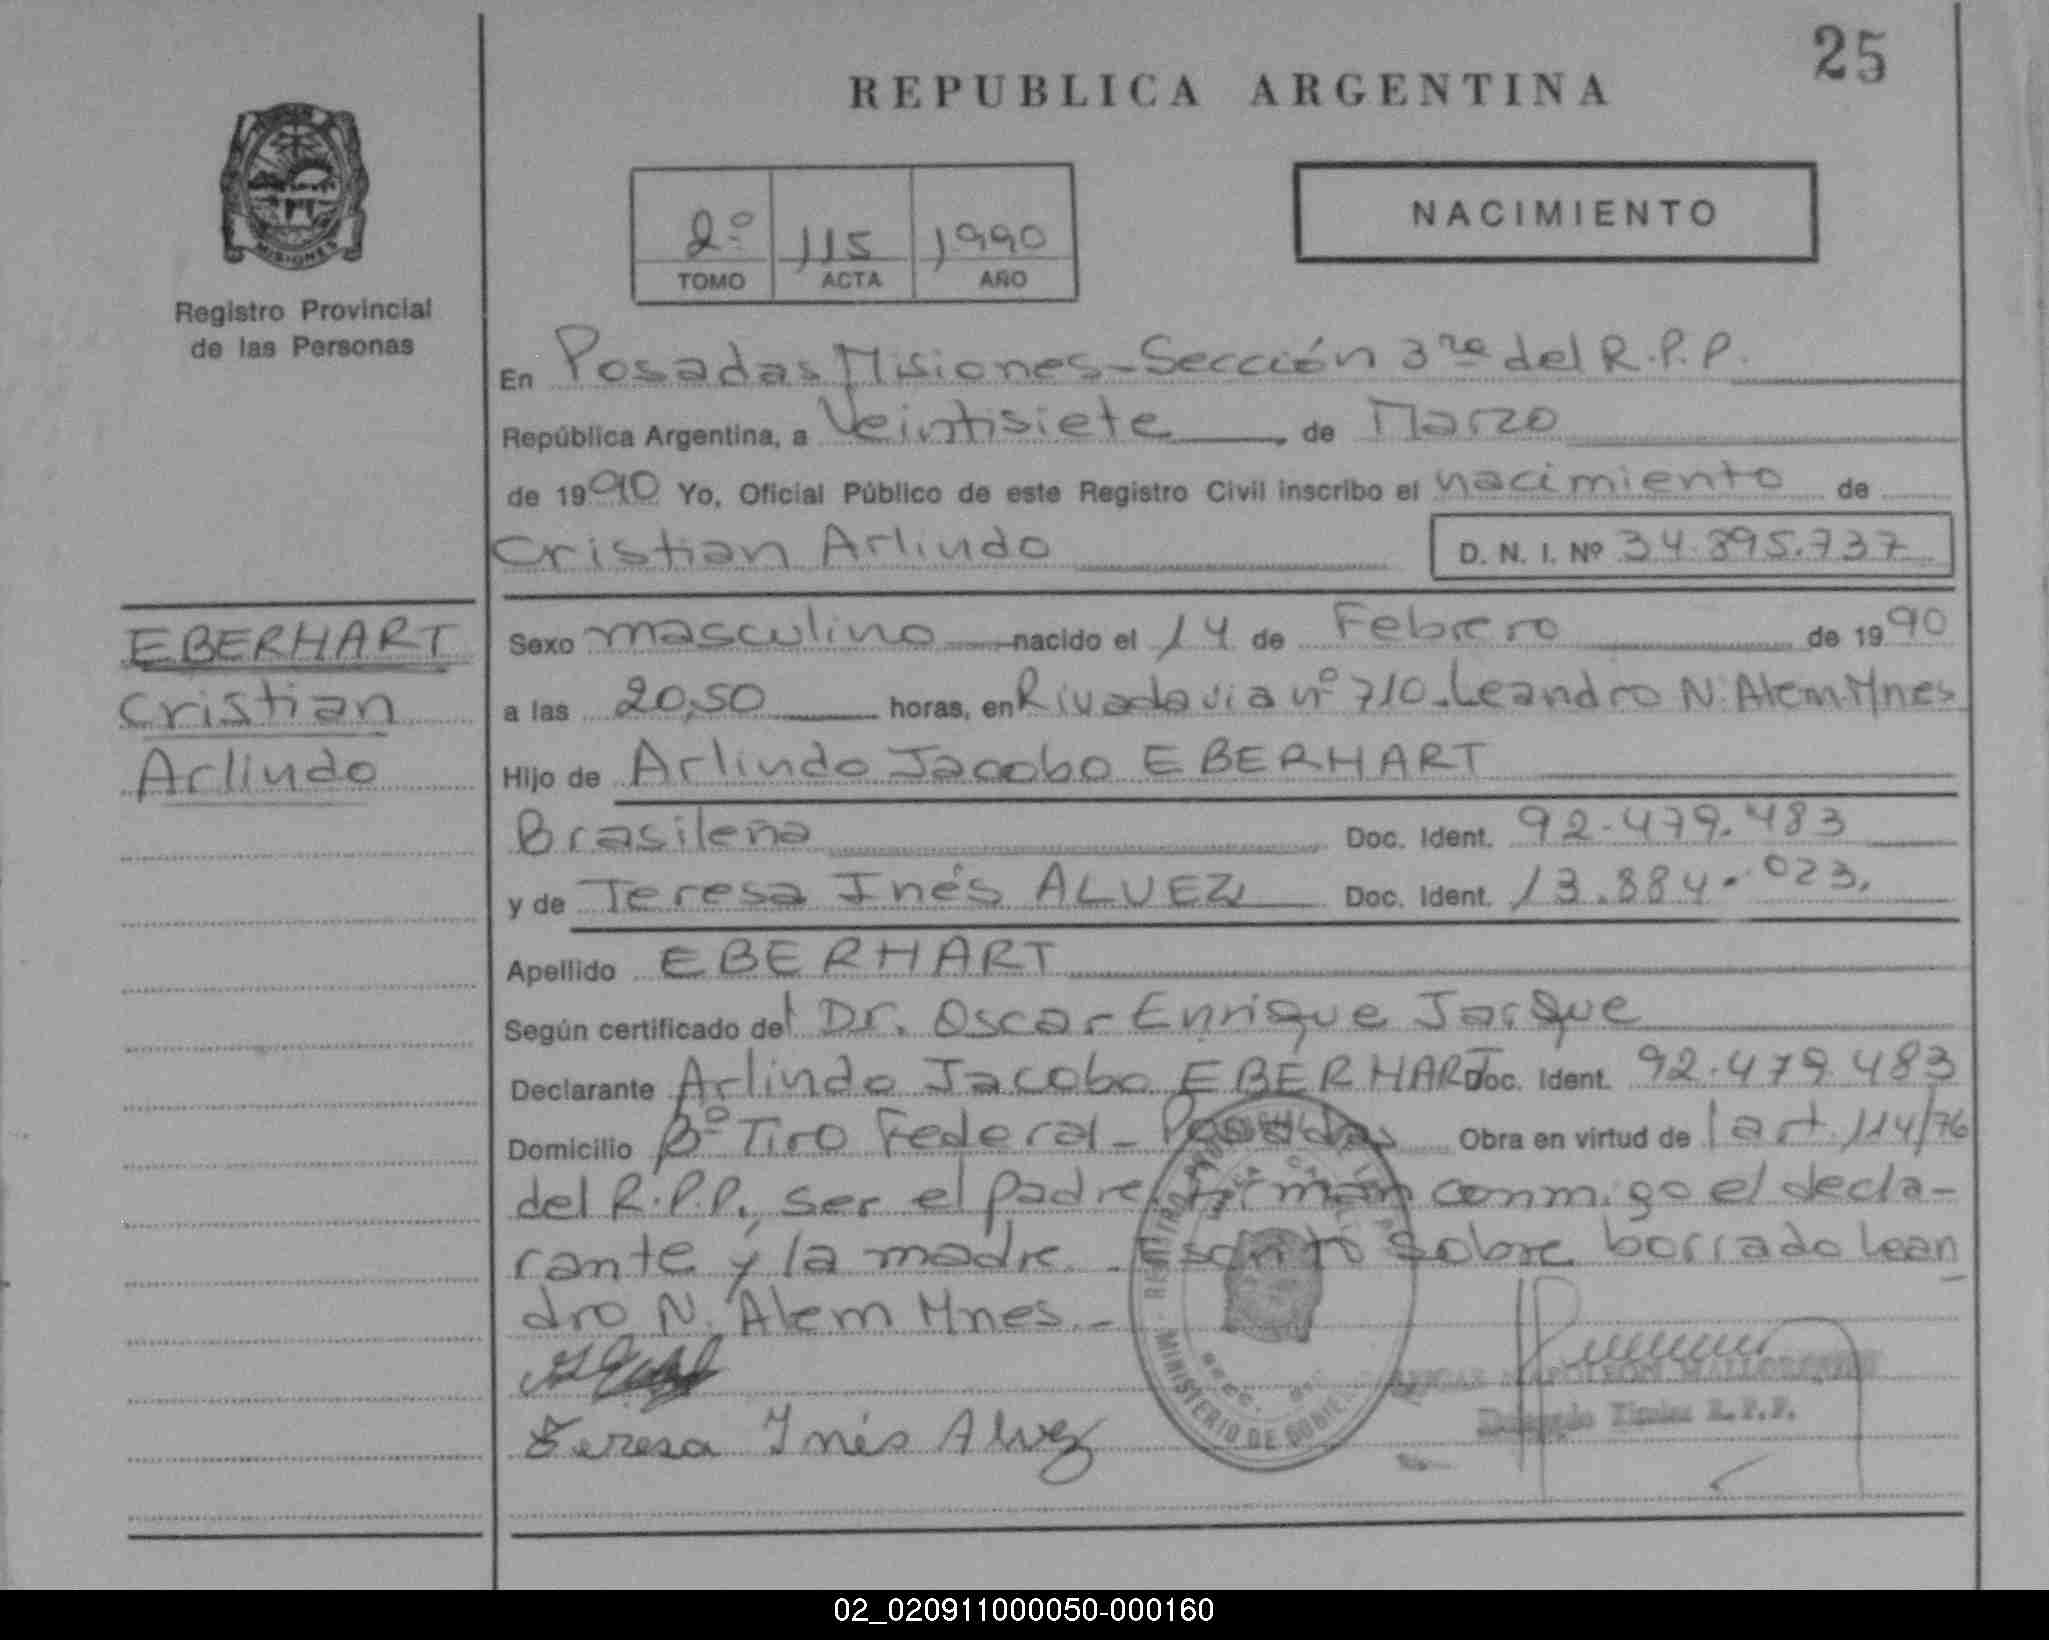 25
REPUBLICA ARGENTINA
MISIONES
Registro Provincial
de las Personas
2º 115 1990
TOMO ACTA AÑO
NACIMIENTO
En Posadas Misiones - Sección 3ra del R.P.P.
República Argentina, a Veintisiete, de Marzo
de 1990 Yo, Oficial Público de este Registro Civil inscribo el nacimiento de
Cristian Arlindo D. N. I. Nº 34.895.737
EBERHART
Cristian
Arlindo
Sexo masculino nacido el 14 de Febrero de 1990
a las 20,50 horas, en Rivadavia nº 710 - Leandro N. Alem - Mnes
Hijo de Arlindo Jacobo EBERHART
Brasileña Doc. Ident. 92.479.483
y de Teresa Inés ALVEZ Doc. Ident. 13.884.023.
Apellido EBERHART
Según certificado del Dr. Oscar Enrique Jarque
Declarante Arlindo Jacobo EBERHART Doc. Ident. 92.479.483
Domicilio Bº Tiro Federal - Posadas Obra en virtud del art. 114/76
del R.P.P., ser el padre, firman conmigo el decla-
rante y la madre. Escrito sobre borrado Lean
dro N. Alem Mnes. -
Teresa Inés Alvez
MINISTERIO DE GOBIERNO
Titular R.P.P.
02_020911000050-000160